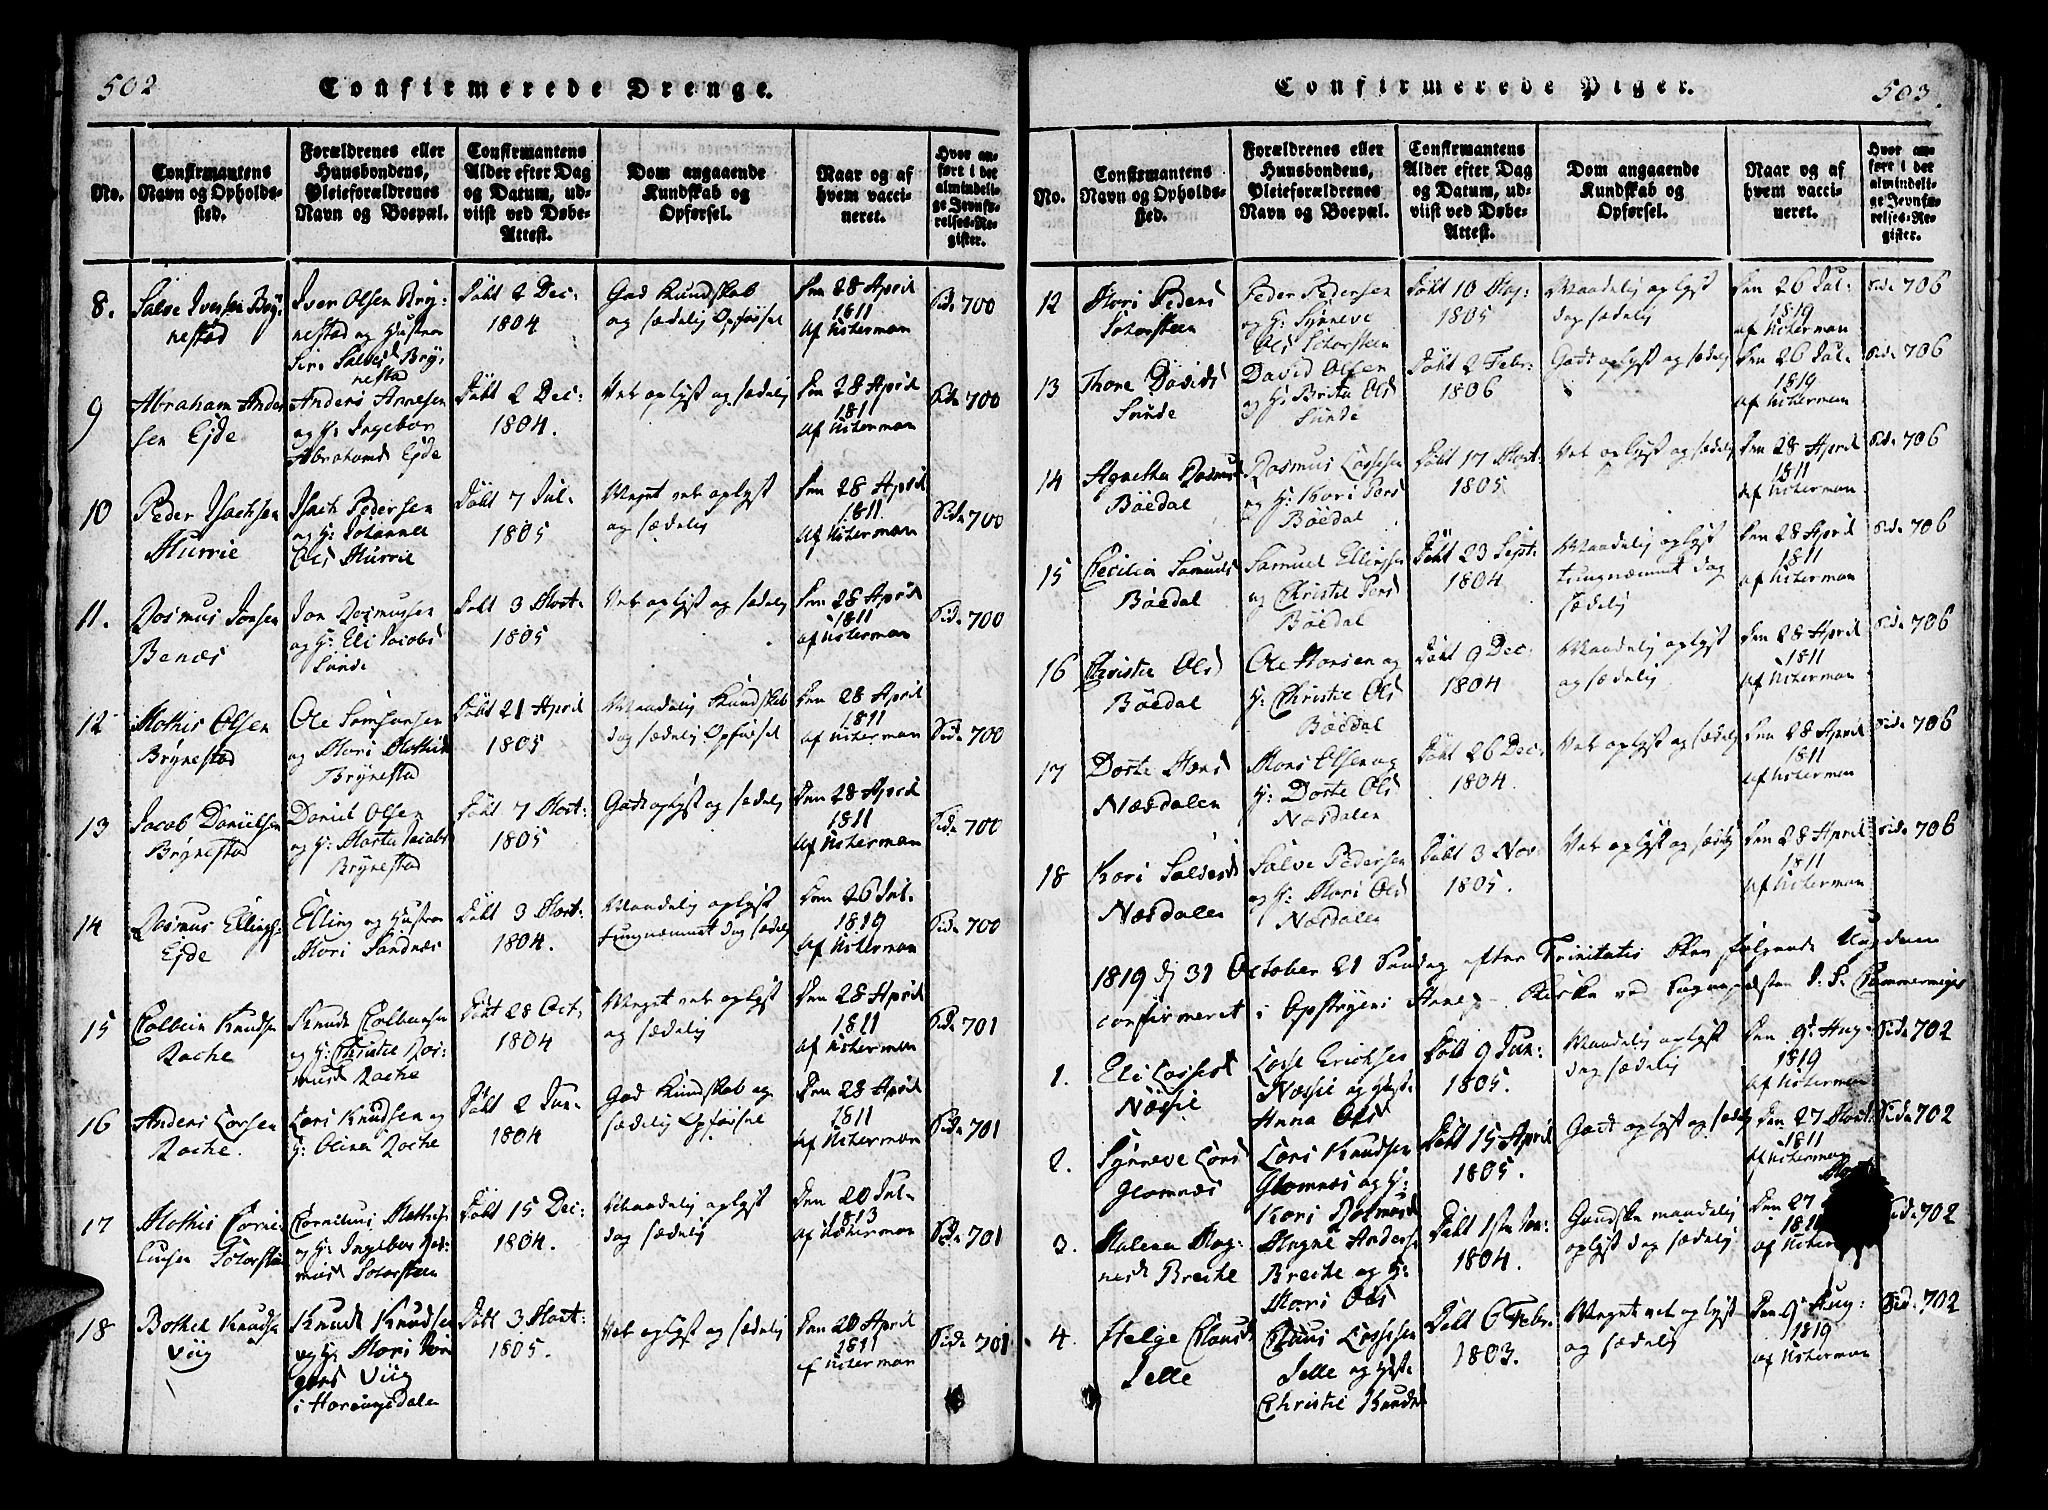 502
Confirmerede Drenge.
No.
Confirmantens
Navn og Opholds-
sted.
Forældrenes eller
Huusbondens,
Pleieforældrenes
Navn og Boepæl.
Confirmantens
Alder efter Dag
og Datum, ud-
viist ved Døbe-
Attest.
Dom angaaende
Kundskab og
Opførsel.
Naar og af
hvem vacci-
neret.
Hvor an-
ført i det
almindeli-
ge Jevnfø-
relses-Re-
gister.
8.
Salve Iversen Bry-
nestad
Iver Olsen Bry:
nestad og Hustroe
Siri Salves Bry:
nestad
Døbt 2 Dec:
1804
God Kundskab
og sædelig Opførsel
Den 28 April
1811
af Utterman
Side 700
9
Abraham Ander
sen Ejde
Anders Arnesen
og H: Ingebor
Abrahams Ejde
Døbt 2 Dec:
1804.
Vel oplyst og sædelig
Den 28 April
1811
af Utterman
Side 700
10
Peder Isachsen
Murrie
Isach Pedersen
og H: Johanne
Ols Murrie
Døbt 7 Jul-
1805
Meget vel oplyst
og sædelig
Den 28 April
1811.
af Utterman
Side 700
11.
Rasmus Jonsen
Benæs
Jon Rasmussen
og H: Eli Jacobs
Sunde
Døbt 3 Mart.
1805
Vel oplyst og sædelig
Den 28 April
1811
af Utterman
Side 700
12
Mathis Olsen
Brynestad
Ole Samsonsen
og Mari Mathis
Brynestad
Døbt 21 April
1805
Maadelig Kundskab
dog sædelig Opførsel
Den 28 April
1811
af Utterman
Side 700
13
Jacob Danielsen
Brynestad
Daniel Olsen
og H: Marta Jacobs
Brynestad
Døbt 7 Mart:
1805
Godt oplyst og sædelig
Den 28 April
1811
af Utterman
Side 700
14
Rasmus Ellings:
Ejde
Elling og Hustroe
Mari Sandnæs
Døbt 3 Mart:
1804.
Maadelig oplyst
tungnæmmet dog sædelig
Den 26 Jul.
1819
af Utterman
Side 700
15
Colbein Knudsen
Rache
Knud Colbensen
og H: Christie Ras:
musd Rache
Døbt 28 Oct.
1804
Meget vel oplyst
og sædelig
Den 28 April
1811
af Utterman
Side 701
16
Anders Larsen
Rache.
Lars Knudsen og
H: Olina Rache
Døbt 2 Jun-
1804
God Kundskab og
sædelig Opførsel
Den 28 April
1811
af Utterman
Side 701
17
Mathis Corne
liusen Totorsteen
Cornelius Mathis:
og H: Ingebor Ras-
musd Totorsteen
Døbt 15 Dec:
1804.
Maadelig oplyst
dog sædelig
Den 20 Jul-
1813
af Utterman
Side 701
18
Bottel Knudsen
Viig
Knud Knudsen
og H: Mari
Viig
i Harengsdalen
Døbt 3 Mart:
1805.
Vel oplyst og sædelig
Den 20 April
1811
af Utterman
Side 701
Confirmerede Piger.
503.
No.
Confirmantens
Navn og Opholds-
sted.
Forældrenes eller
Huusbondens,
Pleieforældrenes
Navn og Boepæl.
Confirmantens
Alder efter Dag
og Datum, ud-
viist ved Døbe-
Attest.
Dom angaaende
Kundskab og
Opførsel.
Naar og af
hvem vacci-
neret.
Hvor an-
ført i det
almindeli-
ge Jevnfø-
relses-Re-
gister.
12
Mari Peders
Totorsteen
Peder Pedersen
og H: Synneve
Ols Totorsteen
Døbt 10 Maj:
1805
Maadelig oplyst
dog sædelig
Den 26 Jul-
1819
af Utterman
Side 706
13
Thone Davids
Sunde
David Olsen
og H: Brita Ols
Sunde
Døbt 2 Febr:
1806
Godt oplyst og sædelig
Den 26 Jul-
1819
af Utterman
Side 706
14
Agnetha Rasmus
Böedal
Rasmus Lassesen
og H: Kari Pers
Böedal
Døbt 17 Mart:
1805
Vel oplyst og sædelig
Den 28 April
1811
af Utterman.
Side 706
15
Cecilia Samuels
Böedal
Samuel Ellingsen
og Christie Pers
Böedal
Døbt 23 Sept:
1804
Maadelig oplyst
tungnæmmet dog
sædelig
Den 28 April
1811
af Utterman
Side 706
16
Christie Ols
Böedal
Ole Hansen og
H: Christie Ols
Böedal
Døbt 9 Dec:
1804
Maadelig oplyst
og sædelig
Den 28 April
1811
af Utterman
Side 706
17
Dorte Hans
Næsdalen
Hans Olsen og
H: Dorte Ols
Næsdalen
Døbt 26 Dec:
1804.
Vel oplyst og sædelig
Den 28 April
1811
af Utterman
Side 706
18
Kari Salves
Næsdalen
Salve Pedersen
og H: Mari Ols
Næsdalen
Døbt 3 Nov:
1805.
Vel oplyst og sædelig
Den 28 April
1811
af Utterman
Side 706
1819 d 31 October 21 Søndag efter Trinitatis bleve følgende Ungdom
confirmeret i Opstryens Annex-Kirke ved Sognepræsten
1.
Eli Lasses
Næssie
Lasse Ericksen
Næssie og Hust:
Anna Ols
Døbt 9 Jun:
1805.
Maadelig oplyst
dog sædelig
Den 9 Aug:
1819
af Utterman
Side 702
2.
Synneve Lars
Glomnæs
Lars Knudsen
Glomnæs og H:
Kari Rasmus
Døbt 15 April
1805.
Godt oplyst og sædelig
Den 27 Mart
1811
af Utterman
Side 702
3.
Malena Mag-
nesd Breche
Magne Anders:
Breche og H:
Mari Ols
Døbt 1ste Jan:
1804.
Ganske maadelig
oplyst dog sædelig
Den 27
af Utter
Side 702
4.
Helge Claus
Jelle
Claus Lassesen
Jelle og Hust:
Christie Knuds
Døbt 6 Febr:
1803.
Meget vel oplyst
og sædelig
Den 9 Aug:
1819
af Utterman
Side 702